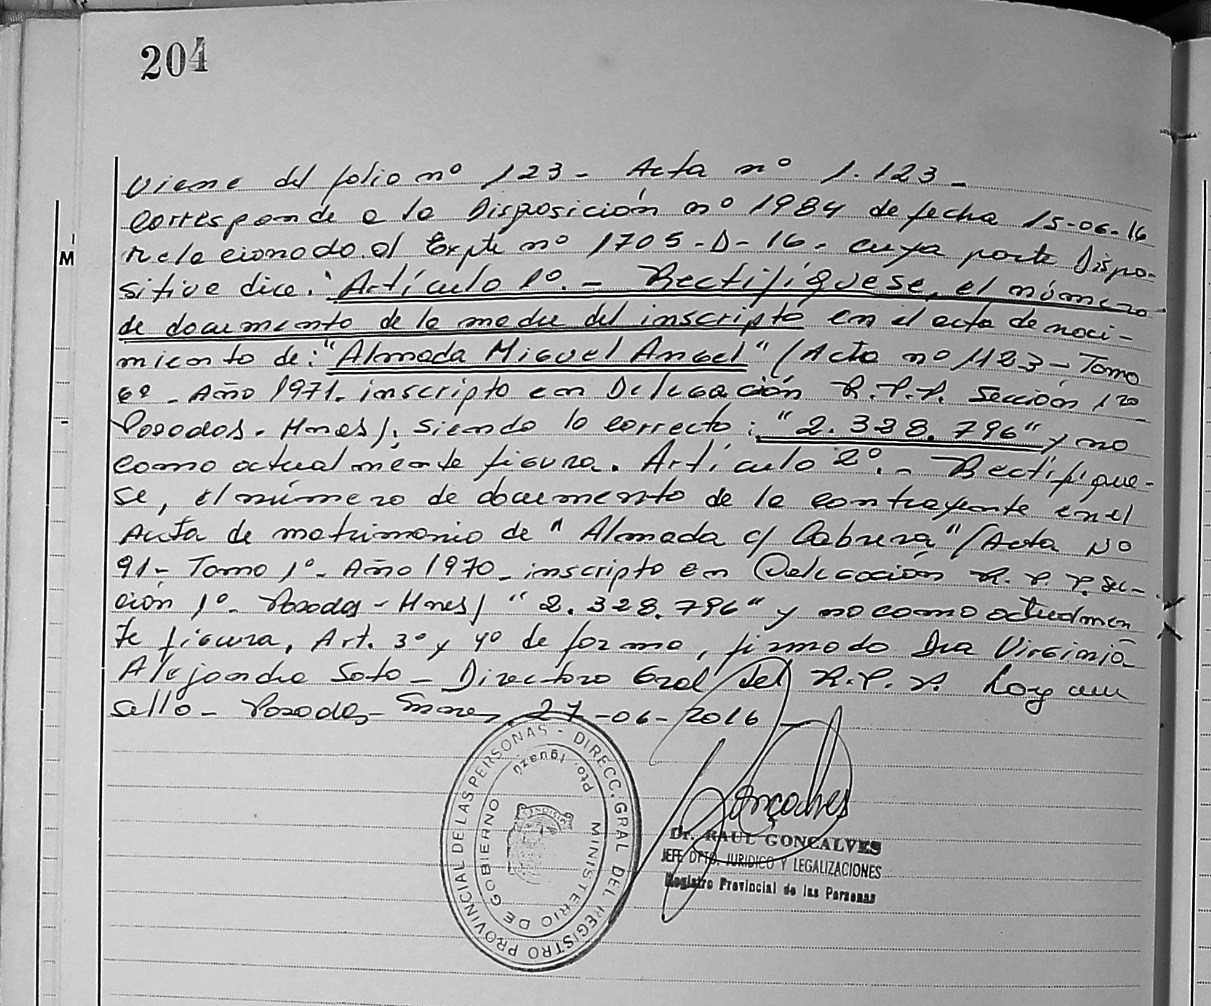 204
M
Viene del folio nº 123 - Acta nº 1.123 -
Corresponde a la Disposición nº 1984 de fecha 15-06-16
relacionado al Expte nº 1705-D-16. cuya parte Dispo-
sitiva dice: "Artículo 1º. - Rectifíquese, el número
de documento de la madre del inscripto en el acta de naci-
miento de: "Almada Miguel Angel" (Acta nº 1123 - Tomo
6º - Año 1971. inscripto en Delegación R.P.P. Sección 1ra
Posadas - Mnes), siendo lo correcto: "2.328.796" y no
como actualmente figura. Artículo 2º. - Rectifíque-
se, el número de documento de la contrayente en el
Acta de matrimonio de "Almada c/ Cabrera" (Acta Nº
91 - Tomo 1º - Año 1970 - inscripto en Delegación R.P.P. Sec-
ción 1º - Posadas - Mnes) "2.328.796" y no como actualmen
te figura, Art. 3º y 4º de forma, firmado Dra Virginia
Alejandra Soto - Directora Gral del R.P.P. Hay un
sello - Posadas - Mnes, 27-06-2016 -
DIRECC. GRAL DEL REGISTRO PROVINCIAL DE LAS PERSONAS -
MINISTERIO DE GOBIERNO
Pto. Iguazú
Gonçalves
Dr. RAUL GONÇALVES
JEFE DPTO. JURIDICO Y LEGALIZACIONES
Registro Provincial de las Personas